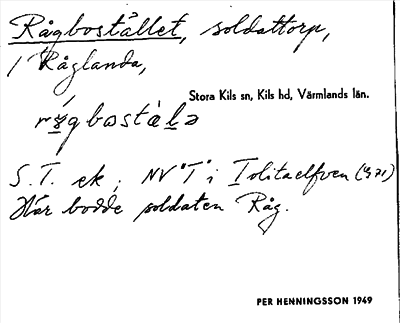 Rågbostållet, soldattorp,
i Råglanda,
Stora Kils sn, Kils hd, Värmlands län.
S. T. ek; NV "T" i
Här bodde soldaten Råg.
PER HENNINGSSON 1949